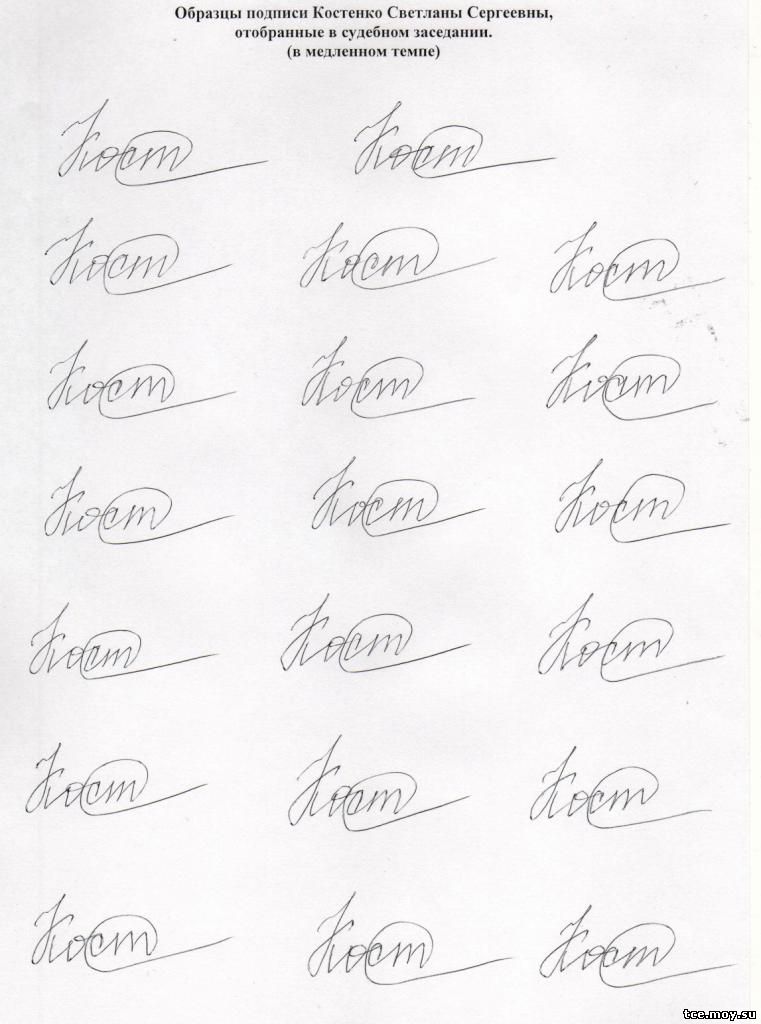 Образцы подписи Костенко Светланы Сергеевны,
отобранные в судебном заседании.
(в медленном темпе)
Кост Кост
Кост Кост Кост
Кост Кост Кост
Кост Кост Кост
Кост Кост Кост
Кост Кост Кост
Кост Кост Кост
tce.moy.su